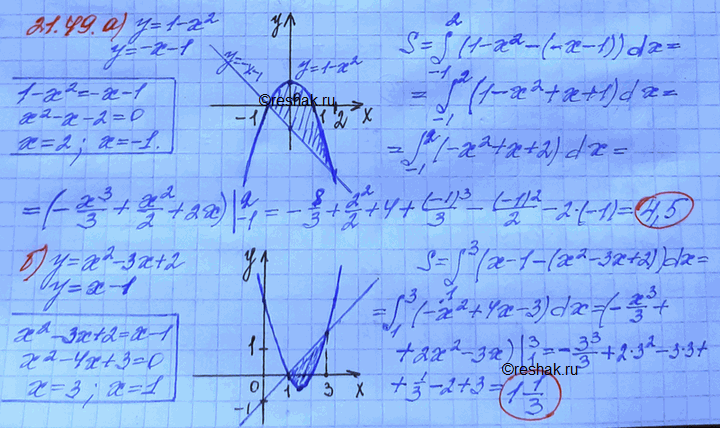 21.49. а) y=1-x²
y=-x-1
1-x²=-x-1
x²-x-2=0
x=2; x=-1.
y
y=-x-1
y=1-x²
©reshak.ru
-1
1
2
x
S=∫₋₁²(1-x²-(-x-1))dx=
=∫₋₁²(1-x²+x+1)dx=
=∫₋₁²(-x²+x+2)dx=
=(-x³/3+x²/2+2x)|₋₁²=-8/3+2²/2+4+(-1)³/3-(-1)²/2-2·(-1)=4,5
б) y=x²-3x+2
y=x-1
x²-3x+2=x-1
x²-4x+3=0
x=3; x=1
y
1
0
1
3
x
-1
S=∫₁³(x-1-(x²-3x+2))dx=
=∫₁³(-x²+4x-3)dx=(-x³/3+
+2x²-3x)|₁³=-3³/3+2·3²-3·3+
©reshak.ru
+1/3-2+3=1 1/3